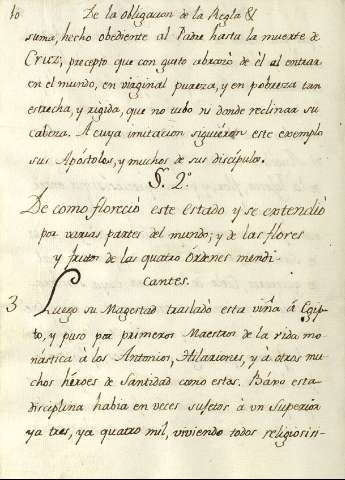 10 De la obligacion de la Regla &
suma, hecho obediente al Padre hasta la muerte de
Cruz; precepto que con gusto abrazó de él al entrar
en el mundo, en virginal pureza, y en pobreza tan
estrecha, y rigida, que no tubo ni donde reclinar su
cabeza. A cuya imitacion siguieron este exemplo
sus Apóstoles, y muchos de sus discípulos.
§. 2º
De como floreció este Estado y se extendió
por varias partes del mundo; y de las flores
y frutos de las quatro Órdenes mendi
cantes.
3 Luego su Magestad trasladó esta viña á Egip-
to, y puso por primeros Maestros de la vida mo-
nástica á los Antonios, Hilariones, y á otros mu
chos héroes de Santidad como estos. Báxo esta
disciplina habia en veces sujetos á un Superior
ya tres, ya quatro mil, viviendo todos religiosis-